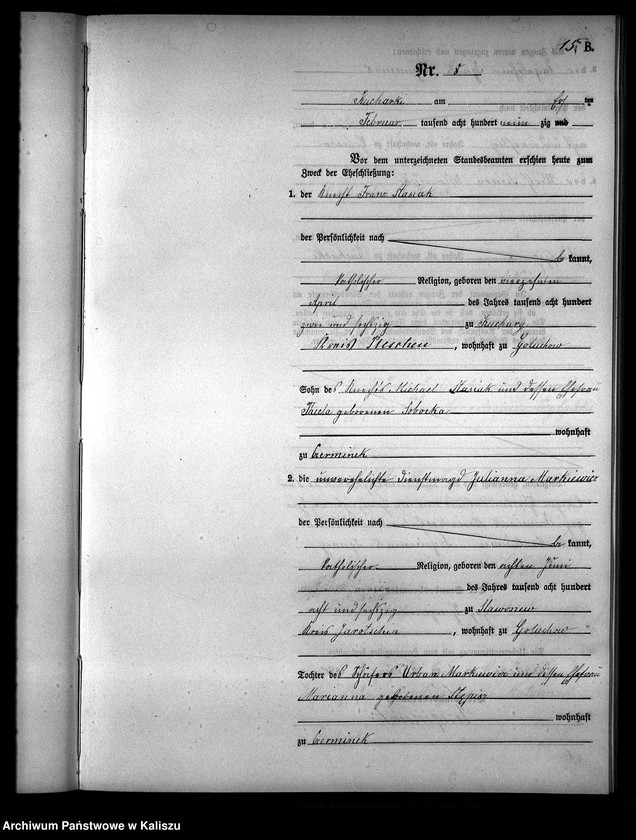 15. B.
Nr. 8
Kucharki am ten
Februar tausend acht hundert neun zig und
Vor dem unterzeichneten Standesbeamten erschien heute zum
Zweck der Eheschließung:
1. der Knecht Franz Stasiak
der Persönlichkeit nach
be kannt,
katholischer Religion, geboren den vierzehnten
April des Jahres tausend acht hundert
zwei und sechzig zu Kuchary
Kreis Pleschen, wohnhaft zu Goluchow
Sohn des Knechts Michael Stasiak und dessen Ehefrau
Thecla geborenen Sobocka
wohnhaft
zu Czerminek
2. die unverehelichte Dienstmagd Julianna Markiewicz
der Persönlichkeit nach
be kannt,
katholischer Religion, geboren den achten Juni
des Jahres tausend acht hundert
acht und sechzig zu Slawoszew
Kreis Jarotschin, wohnhaft zu Goluchow
Tochter des Schäfers Urban Markiewicz und dessen Ehefrau
Marianna geborenen
wohnhaft
zu Czerminek
Archiwum Państwowe w Kaliszu